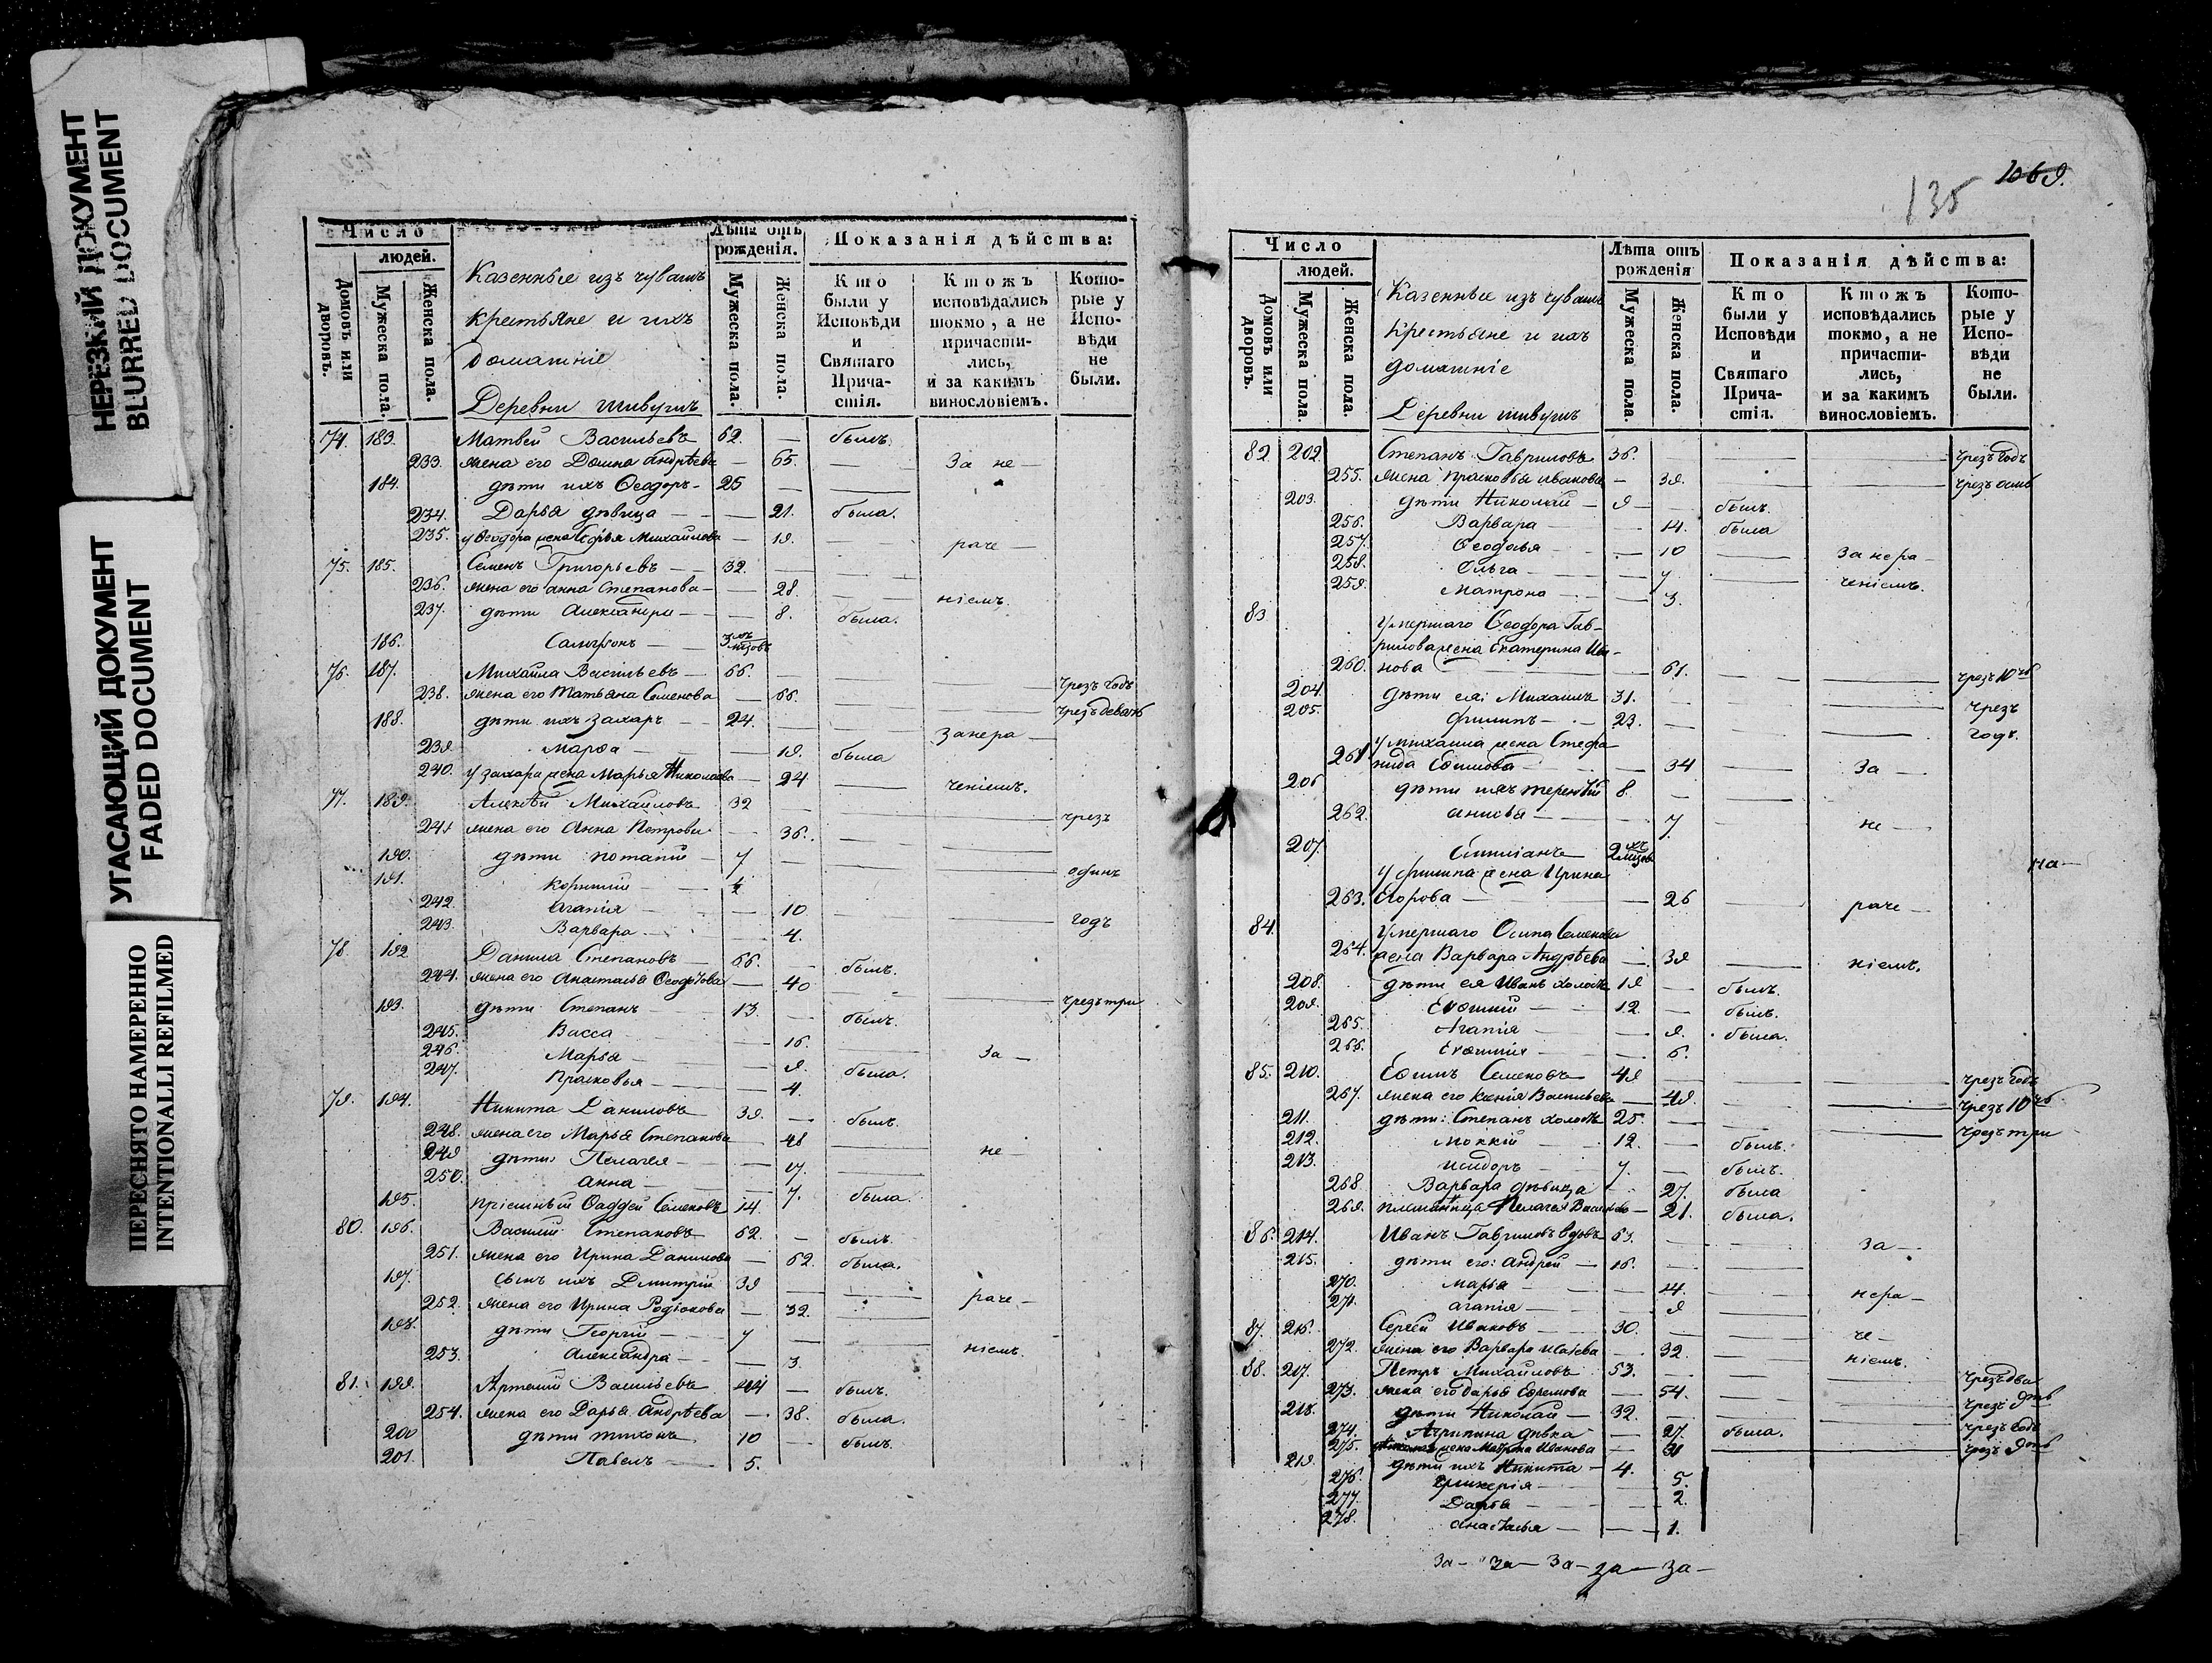 НЕРЕЗКИЙ ДОКУМЕНТ
BLURRED DOCUMENT
УГАСАЮЩИЙ ДОКУМЕНТ
FADED DOCUMENT
ПЕРЕСНЯТО НАМЕРЕННО
INTENTIONALLI REFILMED
Число
людей.
Домовъ или дворовъ.
Мужеска пола.
Женска пола.
Казенные изъ чувашъ
крестьяне и ихъ
домашніе
Деревни
Лѣта отъ рожденія.
Мужеска пола.
Женска пола.
Показанія дѣйства:
Кто были у Исповѣди и Святаго Причастія.
Ктожъ исповѣдались токмо, а не причастились, и за какимъ винословіемъ.
Которые у Исповѣди не были.
74. 183. Матвей Васильевъ 62. — былъ.
233. жена его Домна Андрѣева — 65. — За не —
184. дѣти ихъ Ѳеодоръ — 25 —
234. Дарья дѣвица — — 21. была.
235. у Ѳеодора жена Софья Михайлова — 19. — раче —
75. 185. Семенъ Григорьевъ — 32. —
236. жена его Анна Степанова — — 28. — ніемъ.
237. дѣти Александра — — 8. была.
186. — 3
76. 187. Михайла Васильевъ — 66. — чрезъ годъ
238. жена его Татьяна Семенова — 66. — чрезъ девять
188. дѣти ихъ Захаръ — 24. — занера —
239. Марѳа — — 19. была
240. у Захара жена Марья Николаева — 24 — ченіемъ.
77. 189. Алексѣй Михайловъ 32 — чрезъ
241 жена его Анна Петрова — 36. —
190. дѣти Потапій — 7 — одинъ
191. Корнилій — 4
242. Агапія — — 10 — годъ
243. Варвара — — 4.
78. 192 Данила Степановъ — 66. — былъ.
244. жена его Анастасья Ѳеодотова — 40 — чрезъ три
193. дѣти Степанъ — 13. — былъ.
245. Васса — — 16. — За —
246. Марья — — 9 была.
247. Прасковья — — 4.
79. 194. Никита Даниловъ 39. — былъ.
248. жена его Марья Степанова — 48 — не —
249 дѣти: Пелагея — — 17.
250. Анна — — 7. была.
195. пріемный Ѳаддей Семеновъ 14.
80. 196. Василій Степановъ 62. — былъ.
251. жена его Ирина Данилова — 62. была.
197. сынъ ихъ Дмитрій 39 — раче —
252. жена его Ирина Родіонова — 32. —
198. дѣти Георгій — 7 — ніемъ.
253. Александра — — 3.
81. 199. Артемій Васильевъ 44 — былъ.
254. жена его Дарья Андрѣева — 38. была.
200 дѣти Тихонъ 10 — былъ.
201. Павелъ — 5.
135 1069.
Число
людей.
Домовъ или дворовъ.
Мужеска пола.
Женска пола.
Казенные изъ чувашъ
крестьяне и ихъ
домашніе
Деревни
Лѣта отъ рожденія
Мужеска пола.
Женска пола.
Показанія дѣйства:
Кто были у Исповѣди и Святаго Причастія.
Ктожъ исповѣдались токмо, а не причастились, и за какимъ винословіемъ.
Которые у Исповѣди не были.
82 202. Степанъ Гавриловъ 36. — чрезъ годъ
255. жена Прасковья Иванова — 39. — чрезъ
203. дѣти Николай — 9 — былъ.
256. Варвара — — 14. была
257. Ѳеодосья — — 10 — Занера —
258. Ольга — — 7 — ченіемъ.
259. Матрона — — 3.
83 умершаго Ѳеодора Гав-
рилова жена Екатерина Ива-
260. нова — — 61. — чрезъ 10
204. дѣти ея: Михаилъ 31. — чрезъ
205. Филипъ — 23. — годъ.
у Михаила жена Стефа
261 нида — 34 — За —
206 дѣти ихъ Терентій 8. —
262. Анисья — — 7 — не —
207. 2
на —
у Филипа жена Ирина
263. Егорова — — 26 — раче —
84. умершаго Осипа Семенова
264. жена Варвара Андрѣева — 39 — ніемъ.
208. дѣти ея Иванъ холостъ 19 — былъ.
209. Евѳимій — 12. — былъ.
265. Агапія — — 9. была.
266. Евѳимія — — 6.
85. 210. Ефимъ Семеновъ 49 — чрезъ годъ
267. жена его Ксенія Васильева — 49. — чрезъ 10
211. дѣти: Степанъ холостъ 25. — чрезъ три
212. Моккій — 12. — былъ.
213. Исидоръ — 7 — былъ.
268. Варвара дѣвица — 27. была
269. Пелагея — 21. была.
86. 214. Иванъ Гавриловъ вдовъ 63. — За —
215. дѣти его: Андрей — 16. —
270. Марья — — 14. — нера —
271. Агапія — — 9
87. 216. Сергѣй Ивановъ — 30. — че —
272. жена его Варвара — 32. — ніемъ.
88. 217. Петръ Михайловъ 53. — чрезъ два
273. жена его Дарья Ефремова — 54. — чрезъ
218. дѣти Николай — 32. — чрезъ годъ
274. Агрипина дѣвка — 27. была.
275. жена Матрона Иванова — 31 — чрезъ
219. дѣти ихъ Никита — 4.
276. Гликерія — — 5.
277. Дарья — — 2.
278. Анастасья — — 1.
За — За — За — За — За —